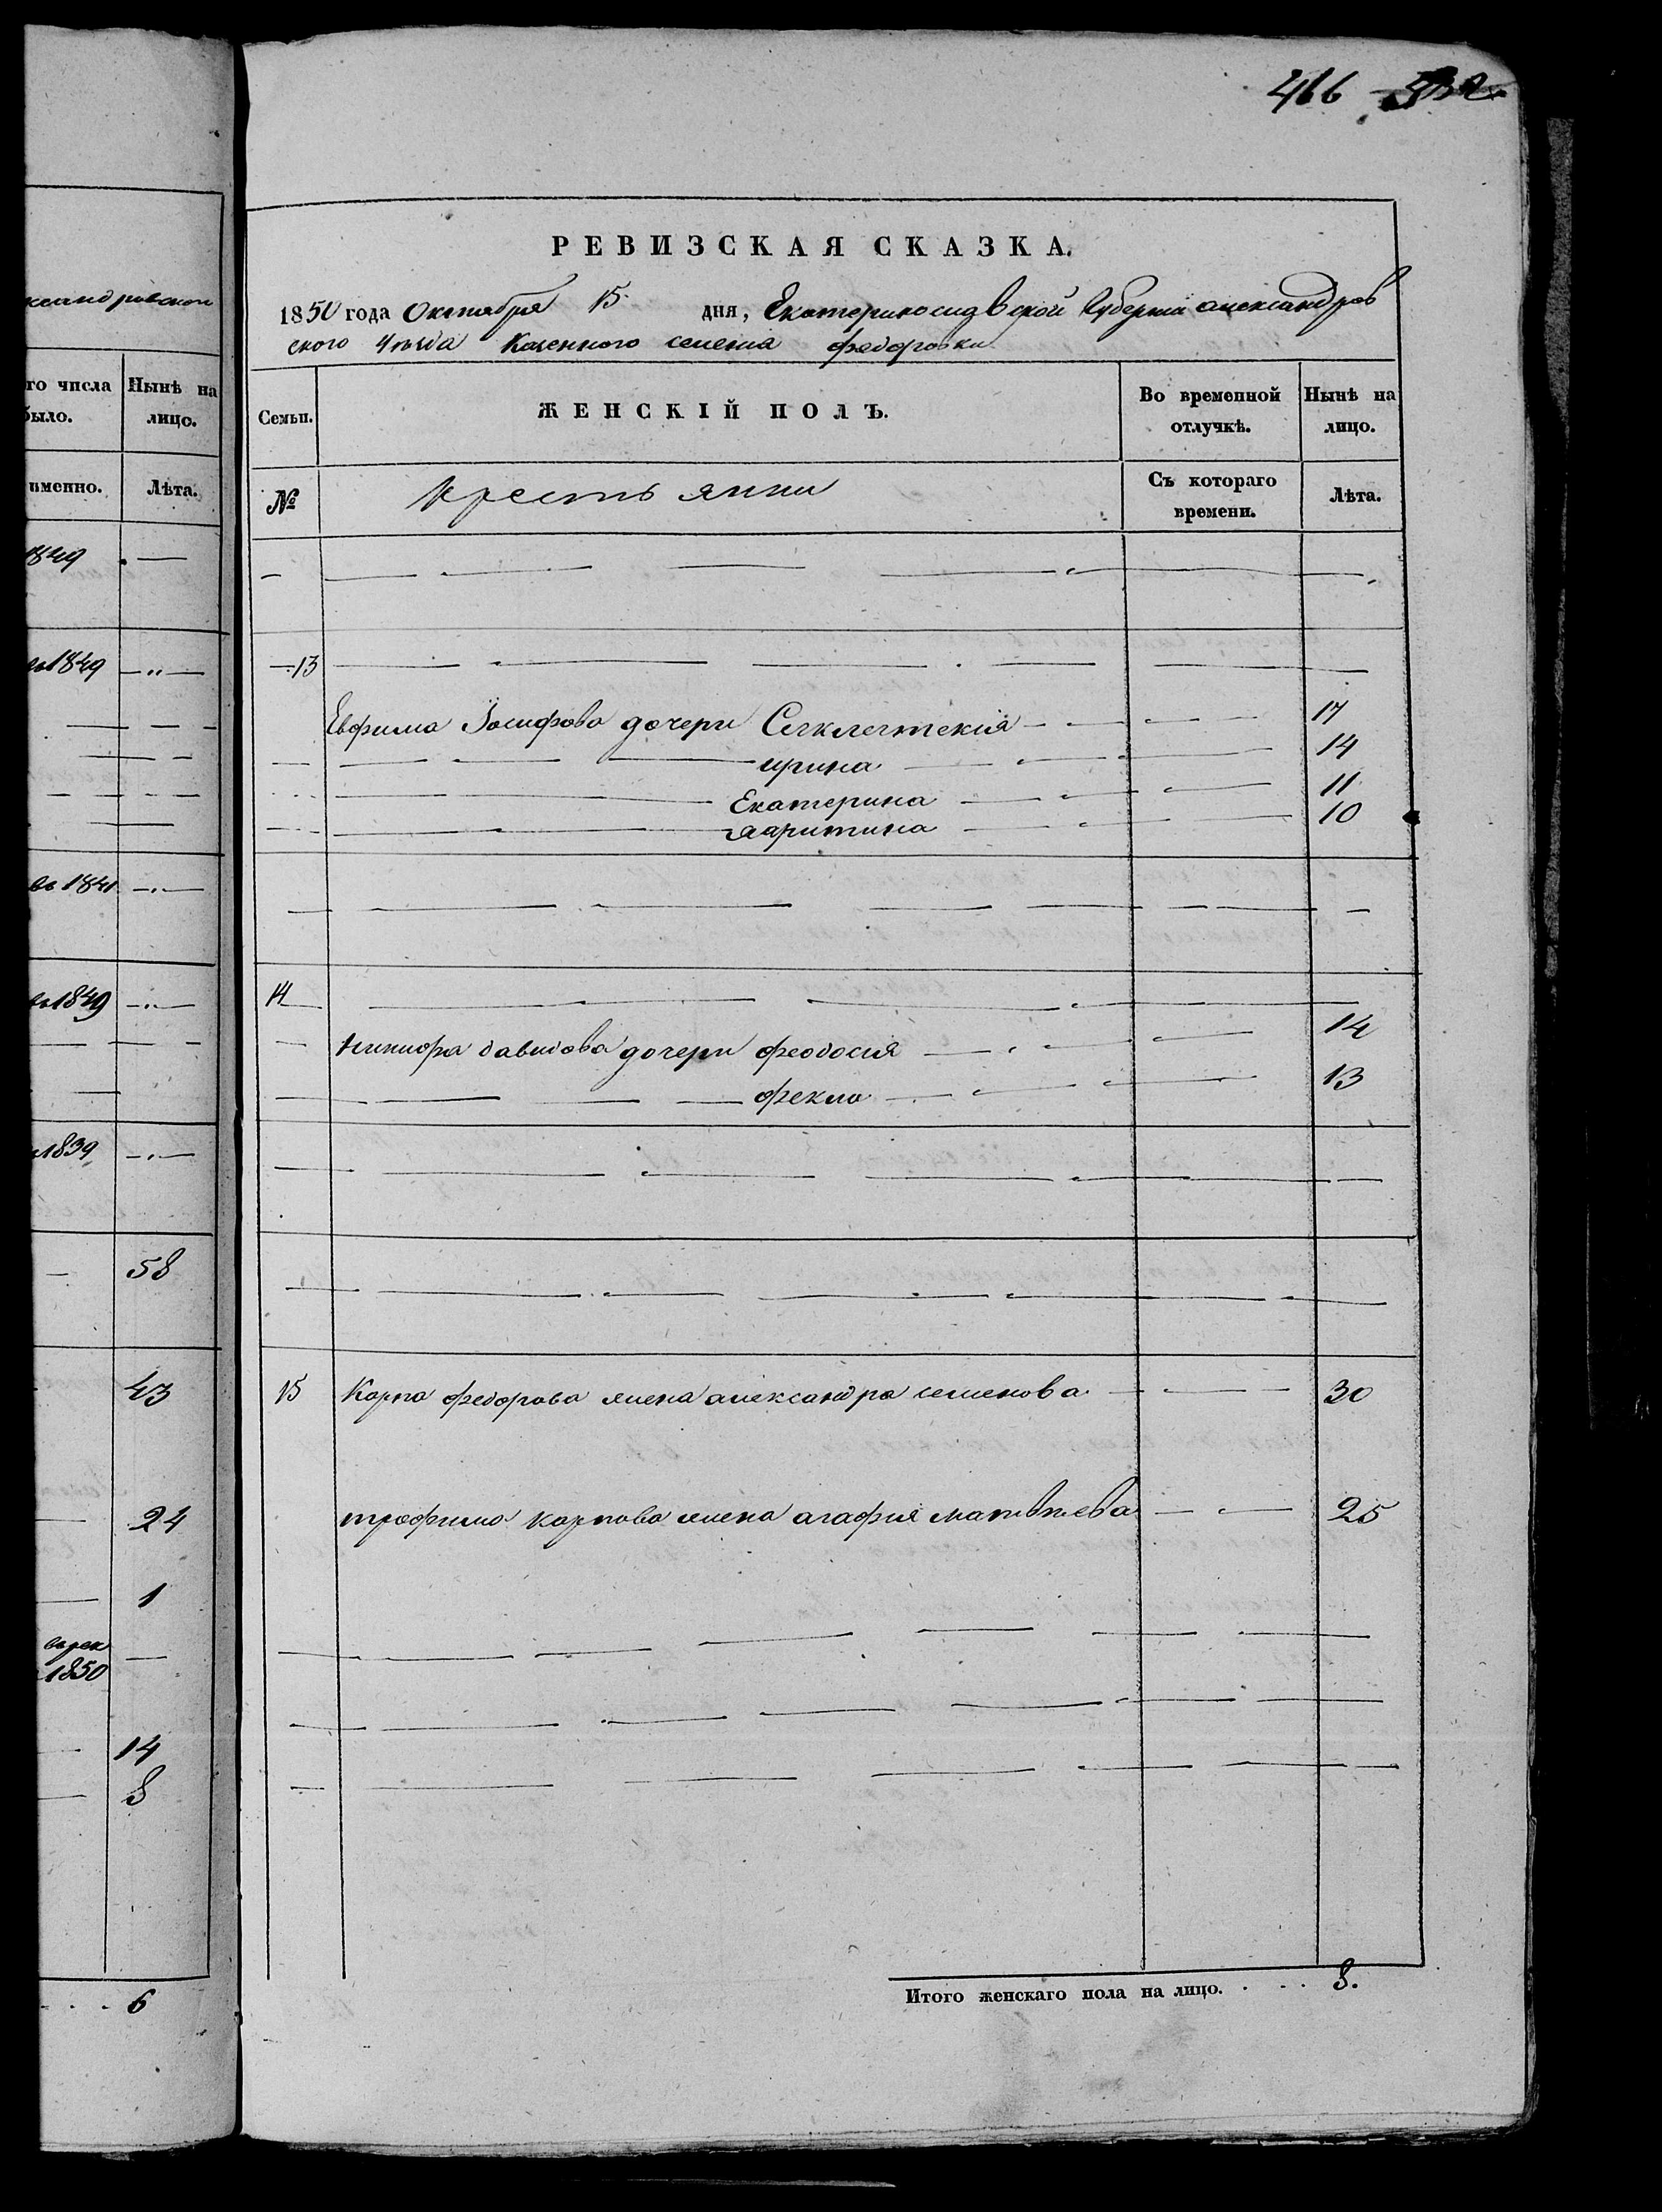 466
ксандровской
го числа Нынѣ на
было. лицо.
именно. Лѣта.
1849
1849
въ 1841
1849
1839
58
43
24
1
1850
14
8
6
РЕВИЗСКАЯ СКАЗКА.
1850 года Октября 15 дня, Екатеринославской Губерніи александров
ского уѣзда Казенного селенія федоровки
Семьи. ЖЕНСКІЙ ПОЛЪ. Во временной отлучкѣ. Нынѣ на лицо.
№ крестьянки Съ котораго времени. Лѣта.
13
Евфима Іосифова дочери Секлетикія 17
ирина 14
Екатерина 11
харитина 10
14
никифора давидова дочери феодосія 14
фекла 13
15 Карпа федорова жена александра семенова 30
трофима карпова жена агафія матвѣева 25
Итого женскаго пола на лицо. 8.